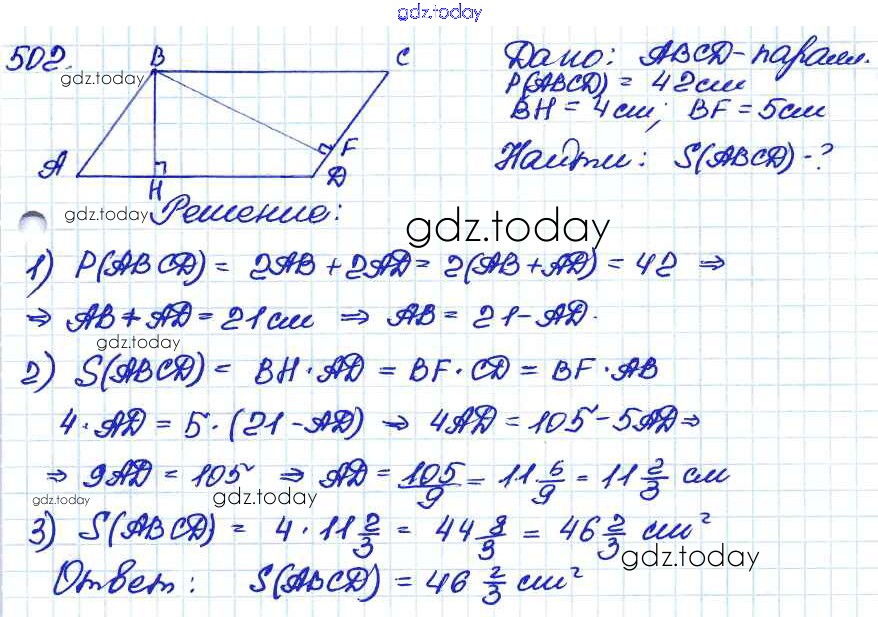 gdz.today
502.
B
C
gdz.today
A
H
F
D
Дано: ABCD - паралл.
P(ABCD) = 42 см
BH = 4 см; BF = 5 см
Найти: S(ABCD) - ?
gdz.today
Решение:
gdz.today
1) P(ABCD) = 2AB + 2AD = 2(AB + AD) = 42 ⇒
⇒ AB + AD = 21 см ⇒ AB = 21 - AD.
gdz.today
2) S(ABCD) = BH · AD = BF · CD = BF · AB
4 · AD = 5 · (21 - AD) ⇒ 4AD = 105 - 5AD ⇒
⇒ 9AD = 105 ⇒ AD = 105/9 = 11 · 6/9 = 11 2/3 см
gdz.today
gdz.today
3) S(ABCD) = 4 · 11 2/3 = 44 8/3 = 46 2/3 см²
gdz.today
Ответ: S(ABCD) = 46 2/3 см²